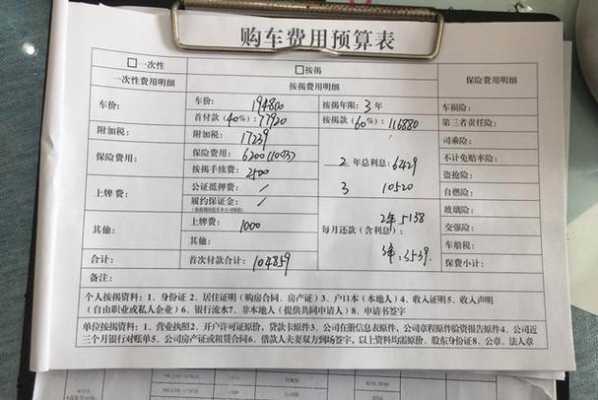 购车费用预算表
□一次性 □按揭
一次性费用明细 按揭费用明细 保险费用明细
车价: 车价: 194800 按揭年限: 3年 车损险:
首付款(40%): 77920 按揭款(60%): 116880 第三者责任险:
附加税: 附加税: 17239 司乘险:
保险费用: 保险费用: 6200 2年总利息: 6429 不计免赔率险:
按揭手续费: 2500 盗抢险:
上牌费: 公证抵押费: / 3 10520 自燃险:
履约保证金: / 玻璃险:
其他: 上牌费: 1000 每月还款(含利息): 2年 5138 交强险:
其他: 3年: 3539 车船税:
合计: 首次付款合计: 104859 保费小计:
备注:
个人按揭资料:1、身份证 2、居住证明(购房合同、房产证)3、户口本(本地人)4、收入证明5、收入声明
(自由职业或私人企业)6、银行流水7、非本地人(提供共同申请人)8、申请书签字
单位按揭资料:1、营业执照2、开户许可证原价,贷款卡原件3、公司在册信息表原件,公司章程原件验资报告原件4、公司近
三个月银行对账单5、公司房产证或租赁合同6、借款人夫妻双方到场签字,以上资料均需原价、股东身份证8、公章、法人章